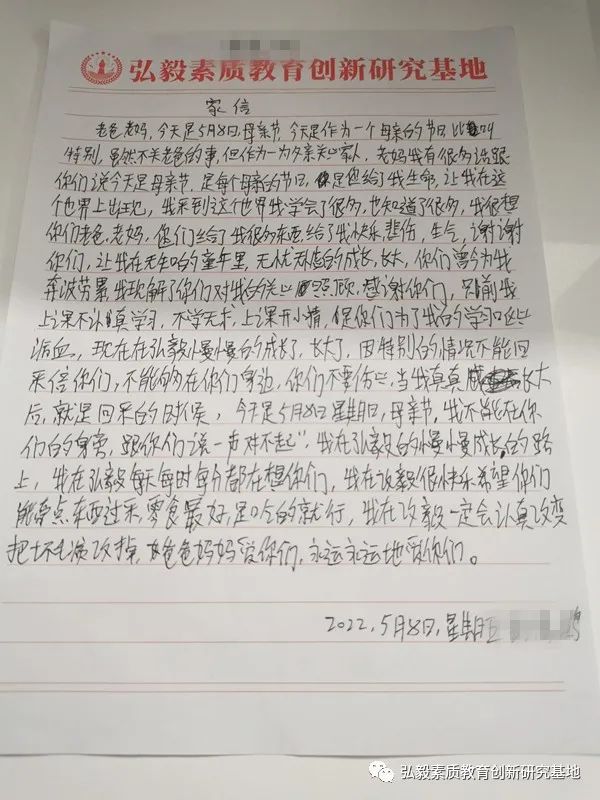 弘毅素质教育创新研究基地
家信
老爸,老妈,今天是5月8日,母亲节,今天是作为一个母亲的节日比
特别,虽然不关老爸的事,但作为一为父亲关心家人,老妈我有很多话跟
你们说今天是母亲节,是每个母亲的节日,是您给了我生命,让我在这
个世界上出现,我来到这个世界我学会了很多,也知道了很多,我很想
你们老爸,老妈,您们给了我很多东西,给了我快乐悲伤,生气,谢谢
你们,让我在无知的童年里,无忧无虑的成长,长大,你们曾今为我
奔波劳累,我理解了你们对我的关心照顾,感谢你们,以前我
上课不认真学习,不学无术,上课开小猜,但你们为了我的学习呕心
沥血,现在在弘毅慢慢的成长了,长大了,因特别的情况不能回
来信你们,不能够在你们身边,你们不要伤心,当我真真长大
后,就是回来的时候,今天是5月8日星期日,母亲节,我不能在你
们的身旁,跟你们说一声对不起",我在弘毅的慢慢成长的路
上,我在弘毅每天每时每分都在想你们,我在改毅很快乐,希望你们
能带点东西过来,零食最好,是吃的就行,我在改毅一定会认真改变
把坏毛病改掉,爸爸妈妈爱你们,永远永远地爱你们。
2022,5月8日,星期五
弘毅素质教育创新研究基地